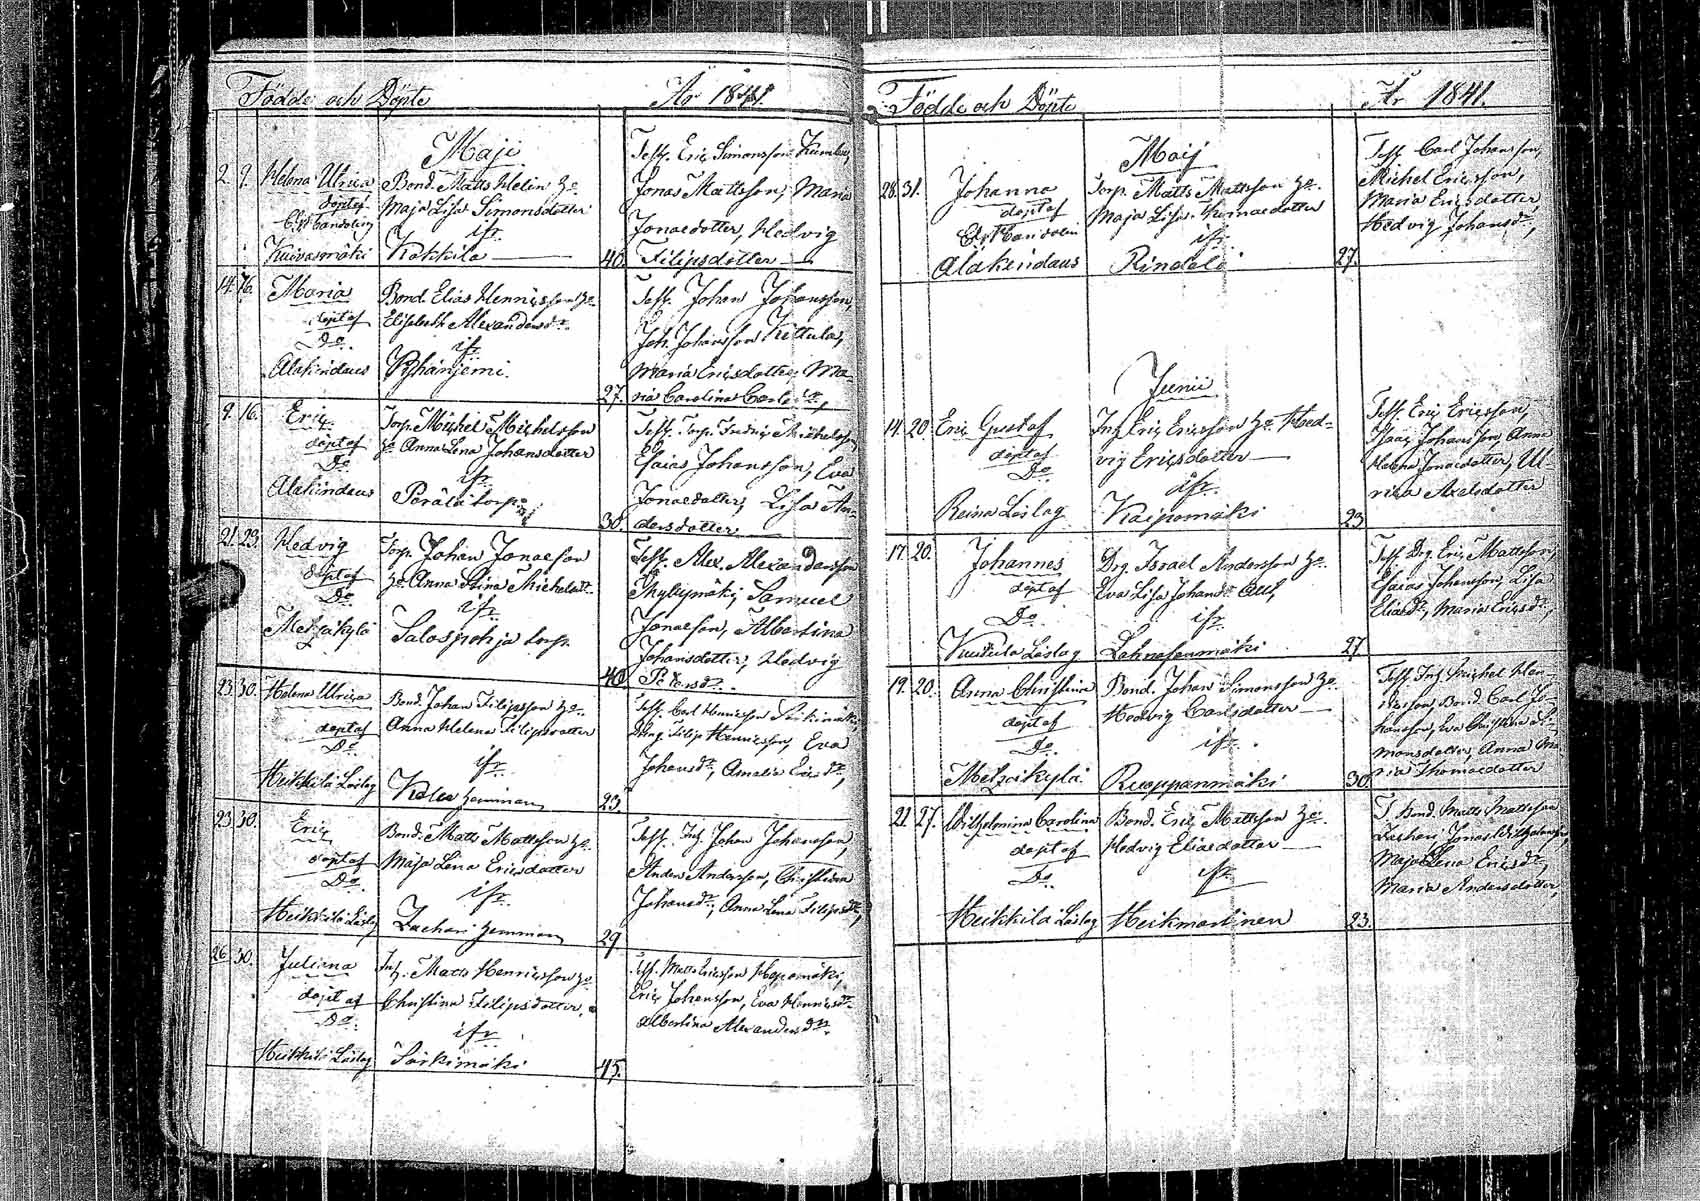 Födde och Döpte År 1841.
Maji
2. 9. Helena Ulrica
döpt af
Kuivasmäki
Bond. Matts Helin Ho.
Maja Lisa Simonsdotter
ifr
Kokkila
40.
Test. Eric Simonsson
Jonas Mattsson, Maria
Jonaedotter, Hedvig
Filipsdotter
14. 16. Maria
döpt af
Do.
Alakeidaus
Bond. Elias Henricsson Ho.
Elisabeth Alexandersdr.
ifr
Pohjanjemi.
27.
Test. Johan Johansson,
Joh. Johansson Kittula,
Maria Ericsdotter, Ma-
ria Carolina Carlsdr,
9. 16. Eric
döpt af
Do.
Alakeidaus
Torp. Michel Michelsson
Ho Anna Lena Johansdotter
ifr
Perälä torp
30.
Test. Torp. Fredric Michelsson
Esaias Johansson, Eva
Jonaedotter, Lisa An-
dersdotter
21. 23. Hedvig
döpt af
Do.
Metzäkylä
Torp. Johan Jonaeson
Ho. Anna Stina Michelsdr.
ifr
Salospohja torp.
40.
Test. Alex. Alexandersson
Myllymäki, Samuel
Jonaeson, Albertina
Johansdotter, Hedvig
Petersdr.
23. 30. Helena Ulrica
döpt af
Do.
Heikkilä Låslag
Bond. Johan Filipsson Ho.
Anna Helena Filipsdotter
ifr
23.
Test. Carl Henricsson Särkimäki,
Filip Henricsson, Eva
Johansdr, Amalia Ericsdr,
23. 30. Eric
döpt af
Do.
Heikkilä Låslag
Bond. Matts Mattsson Ho.
Maja Lena Ericsdotter
ifr
Zachari hemman
29.
Test. Inh. Johan Johansson,
Anders Andersson, Christina
Johansdr, Anna Lena Filipsdr,
26. 30. Juliana
döpt af
Do.
Heikkilä Låslag
Inh. Matts Henricsson Ho
Christina Filipsdotter.
ifr
Särkimäki
45.
Test. Matts Ericsson Kepomäki,
Eric Johansson, Eva Henricsdr.
Albertina Alexandersdr.
Födde och Döpte År 1841.
Maij
28. 31. Johanna
döpt af
Alakeidaus
Torp. Matts Mattsson Ho.
Maja Lisa Thomaedotter
ifr
Rindala
27.
Test. Carl Johansson,
Michel Ericsson,
Maria Ericsdotter,
Hedvig Johansdr,
Junii
14. 20. Eric Gustaf
döpt af
Do.
Reina Låslag
Inh. Eric Ericsson Ho Hed-
vig Ericsdotter
ifr.
Kaipomäki
23.
Test. Eric Ericsson,
Isaac Johansson, Anna
Helena Jonaedotter, Ul-
rica Axelsdotter
17. 20. Johannes
döpt af
Do.
Vuutula Låslag
Drg. Israel Andersson Ho.
Eva Lisa Johansdr
ifr.
Lahnasenmäki
27
Test. Drg. Eric Mattsson,
Esaias Johansson, Lisa
Eliaedr, Maria Ericsdr,
19. 20. Anna Christina
döpt af
Do.
Metzäkylä
Bond. Johan Simonsson Ho
Hedvig Carlsdotter
ifr.
Ruuppanmäki
30.
Test. Inh Michel Hen-
ricsson, Bond. Carl Jo-
hansson, Eva Christina Si-
monsdotter, Anna Ma-
ria Thomaedotter
21. 27. Wilhelmina Carolina
döpt af
Do.
Heikkilä Låslag
Bond. Eric Mattsson Ho.
Hedvig Eliaedotter
ifr
Heikmartinen
23.
T. Bond. Matts Mattsson
Zachari, Jonas Wilhelmsson,
Maja Lena Ericsdr,
Maria Andersdotter,